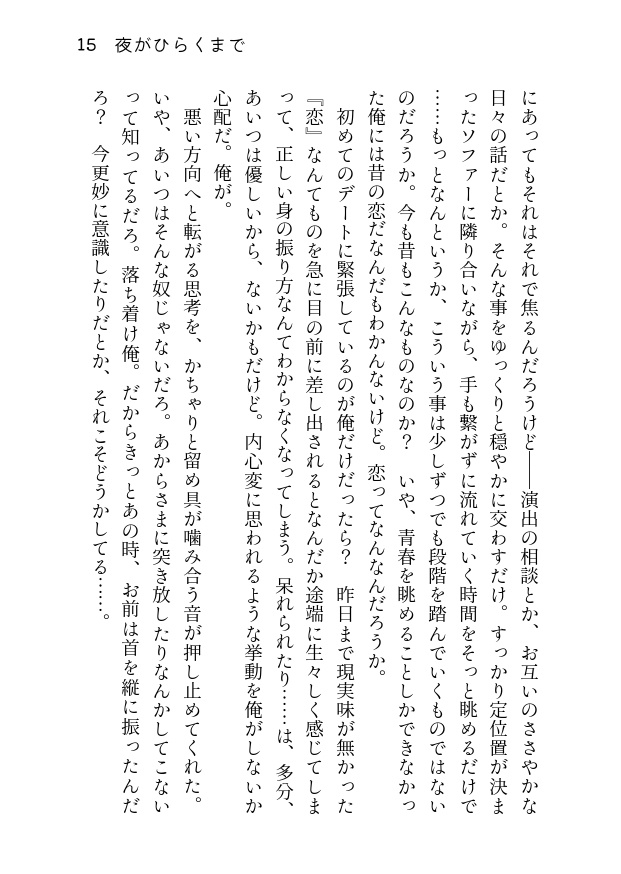 15　夜がひらくまで
にあってもそれはそれで焦るんだろうけど――演出の相談とか、お互いのささやかな
日々の話だとか。そんな事をゆっくりと穏やかに交わすだけ。すっかり定位置が決ま
ったソファーに隣り合いながら、手も繋がずに流れていく時間をそっと眺めるだけで
……もっとなんというか、こういう事は少しずつでも段階を踏んでいくものではない
のだろうか。今も昔もこんなものなのか？　いや、青春を眺めることしかできなかっ
た俺には昔の恋だなんだもわかんないけど。恋ってなんなんだろうか。
　初めてのデートに緊張しているのが俺だけだったら？　昨日まで現実味が無かった
『恋』なんてものを急に目の前に差し出されるとなんだか途端に生々しく感じてしま
って、正しい身の振り方なんてわからなくなってしまう。呆れられたり……は、多分、
あいつは優しいから、ないかもだけど。内心変に思われるような挙動を俺がしないか
心配だ。俺が。
　悪い方向へと転がる思考を、かちゃりと留め具が噛み合う音が押し止めてくれた。
いや、あいつはそんな奴じゃないだろ。あからさまに突き放したりなんかしてこない
って知ってるだろ。落ち着け俺。だからきっとあの時、お前は首を縦に振ったんだ
ろ？　今更妙に意識したりだとか、それこそどうかしてる……。